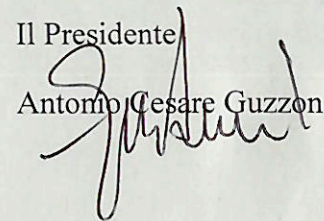 Il Presidente
Antonio Cesare Guzzon